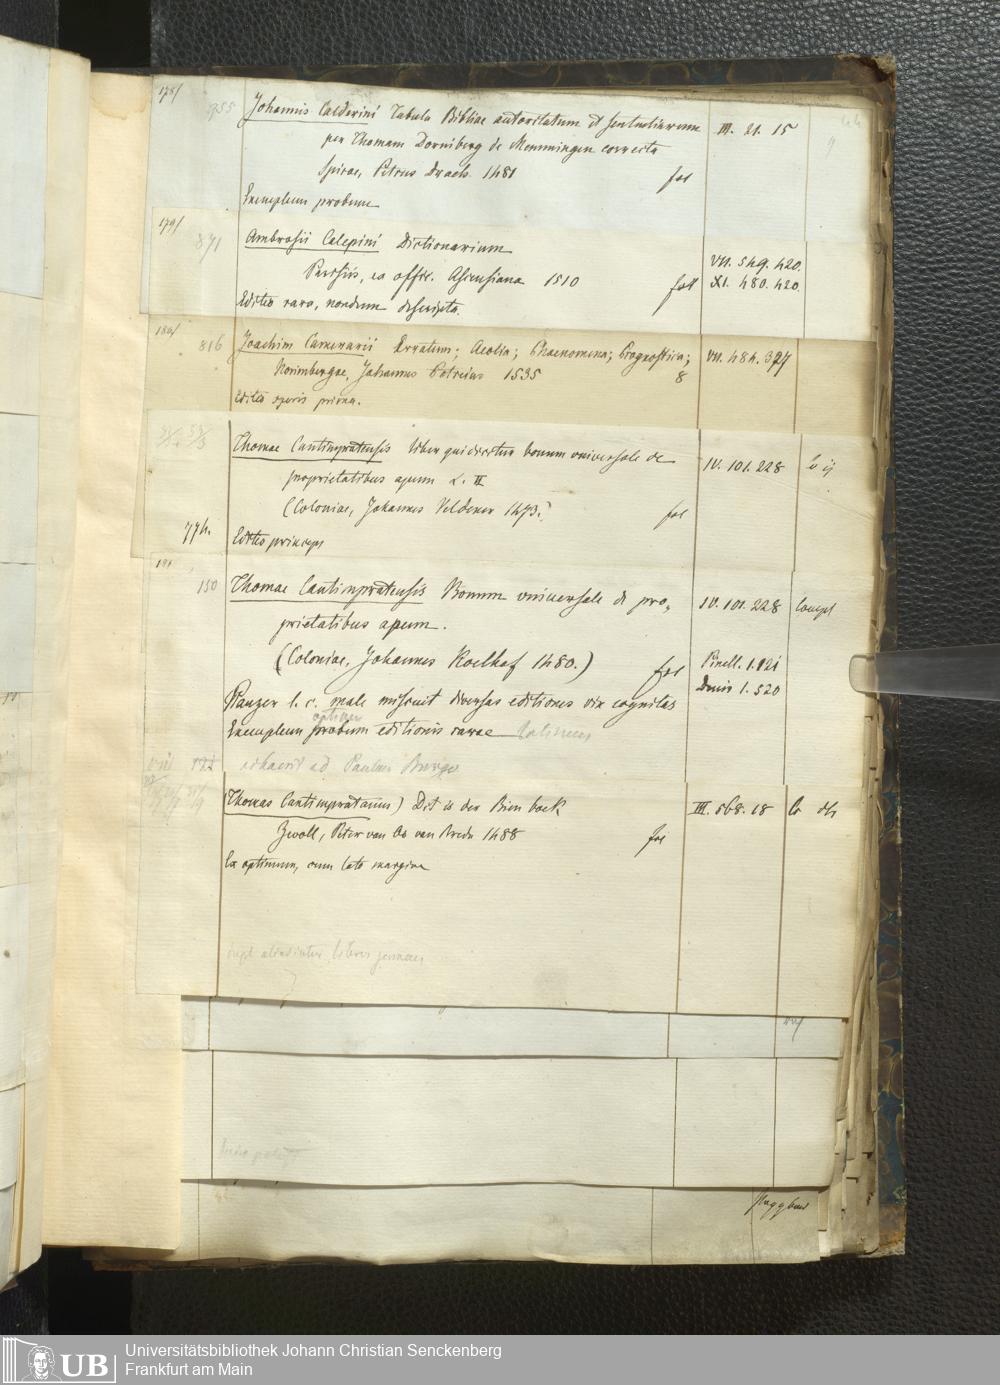 178/
755 Johannis Calderini Tabula Bibliae autoritatum et sententiarum III. 21. 15
per Thomam Dorniberg de Memmingen correcta
Spirae, Petrus Drach. 1481 fol
Exemplum probum
179/
871 Ambrosii Calepini Dictionarium VII. 549. 420.
Parisiis, ex offic. Ascensiana 1510 fol XI. 480. 420.
Editio rara, nondum descripta.
180/
816 Joachim Camerarii Erratum; Aeolia; Phaenomena; Prognostica; VII. 484. 327
Norimbergae, Johannes Petreius 1535 8
Editio operis prima.
Thomae Cantimpratensis liber qui dicitur bonum universale de IV. 101. 228
proprietatibus apum L. II
(Coloniae, Johannes Veldener 1473. fol
774. Editio princeps
181
150 Thomae Cantimpratensis Bonum universale de pro- IV. 101. 228
prietatibus apum.
(Coloniae, Johannes Koelhof 1480.) fol Pinell. 1. 121
Denis 1. 520
Panzer l. c. male miscuit diversas editiones vix cognitas
optimum
Exemplum probum editionis rarae
adhaeret ad Paulus Burge
(Thomas Cantimpratanus) Dit is der Bien boek III. 568. 18
Zwoll, Peter van Os van Breda 1488 fol
Ex optimum, cum lato margine
libros
UB Universitätsbibliothek Johann Christian Senckenberg
Frankfurt am Main